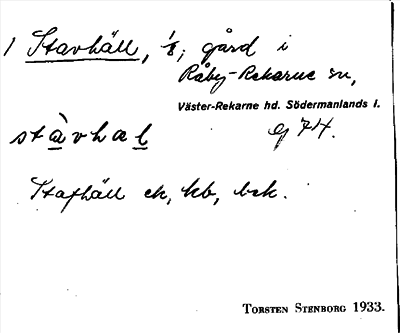 1 Stavhäll, 1/8; gård i
Råby-Rekarne sn,
Väster-Rekarne hd. Södermanlands l.
stàvhæl
Stafhäll ek, kb, bsk.
TORSTEN STENBORG 1933.